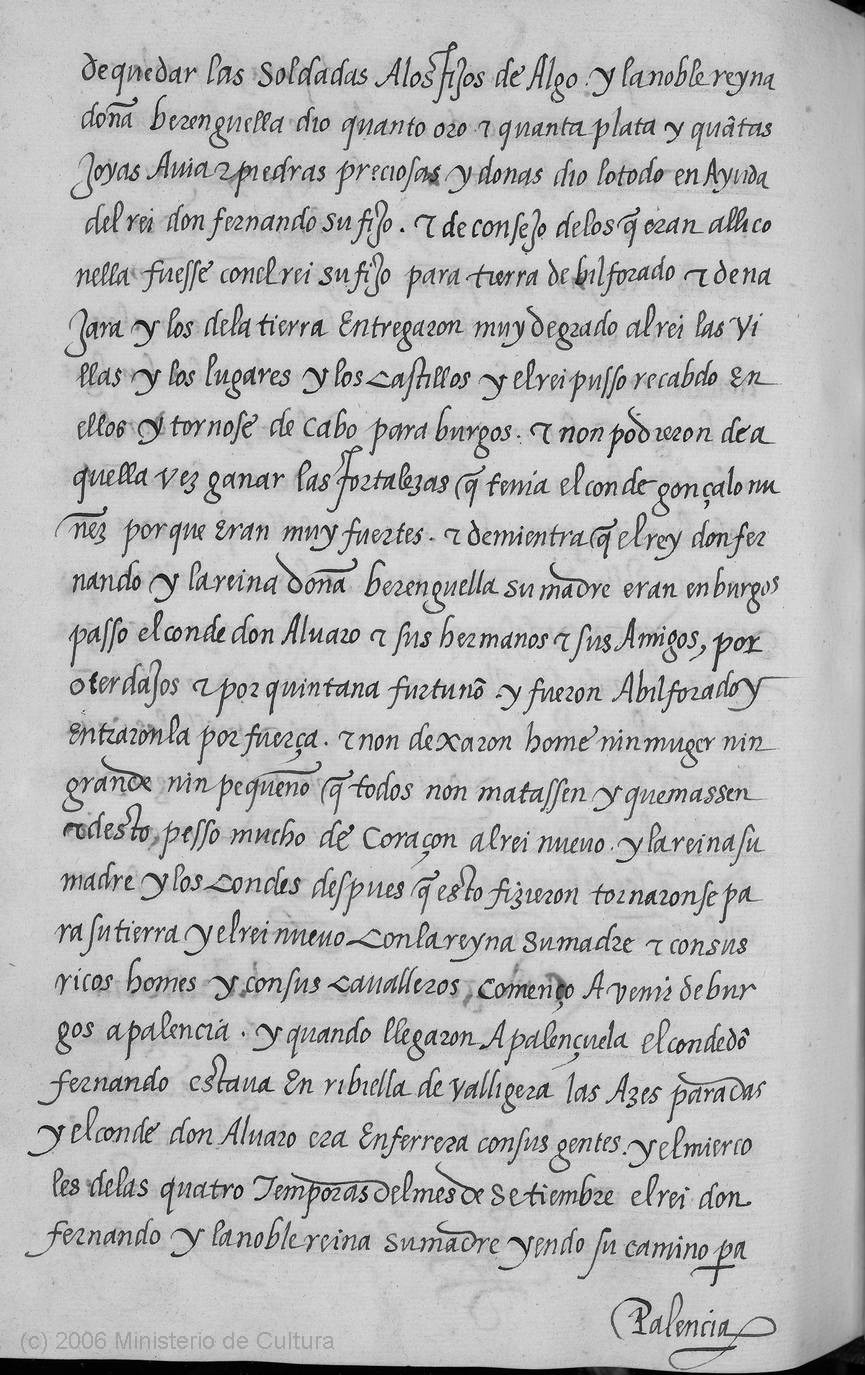 de quedar las Soldadas A los fijos de Algo. y la noble reyna
doña berenguella dio quanto oro ꞇ quanta plata y quãtas
Joyas Auia ꞇ piedras preciosas y donas dio lo todo en Ayuda
del rei don fernando su fijo. ꞇ de consejo de los q̃ eran alli co
nella fuesse con el rei su fijo para tierra de bilforado ꞇ de na
Jara y los de la tierra Entregaron muy de grado al rei las Vi
llas y los lugares y los Castillos y el rei pusso recabdo En
ellos y tornose de Cabo para burgos. ꞇ non podieron de a
quella vez ganar las fortalezas q̃ tenia el conde gonçalo nu
ñez porque Eran muy fuertes. ꞇ demientra q̃ el rey don fer
nando y la reina doña berenguella su madre eran en burgos
passo el conde don Aluaro ꞇ sus hermanos ꞇ sus Amigos, por
oterdajos ꞇ por quintana furtuño y fueron A bilforado y
Entraron la por fuerça. ꞇ non dexaron home nin muger nin
grande nin pequeño q̃ todos non matassen y quemassen
ꞇ desto, pesso mucho de Coraçon al rei nuevo. y la reina su
madre y los Condes despues q̃ esto fizieron tornaronse pa
ra su tierra y el rei nuevo Con la reyna su madre ꞇ con sus
ricos homes y con sus Cavalleros, Començo A venir de bur
gos a palencia. y quando llegaron A palençuela el conde dõ
fernando estaua En ribiella de valligera las Azes paradas
y el conde don Aluaro era En ferrera con sus gentes. y el mierco
les de las quatro Temporas del mes de Setiembre el rei don
fernando y la noble reina su madre yendo su camino ꝑa
Palencia
(c) 2006 Ministerio de Cultura